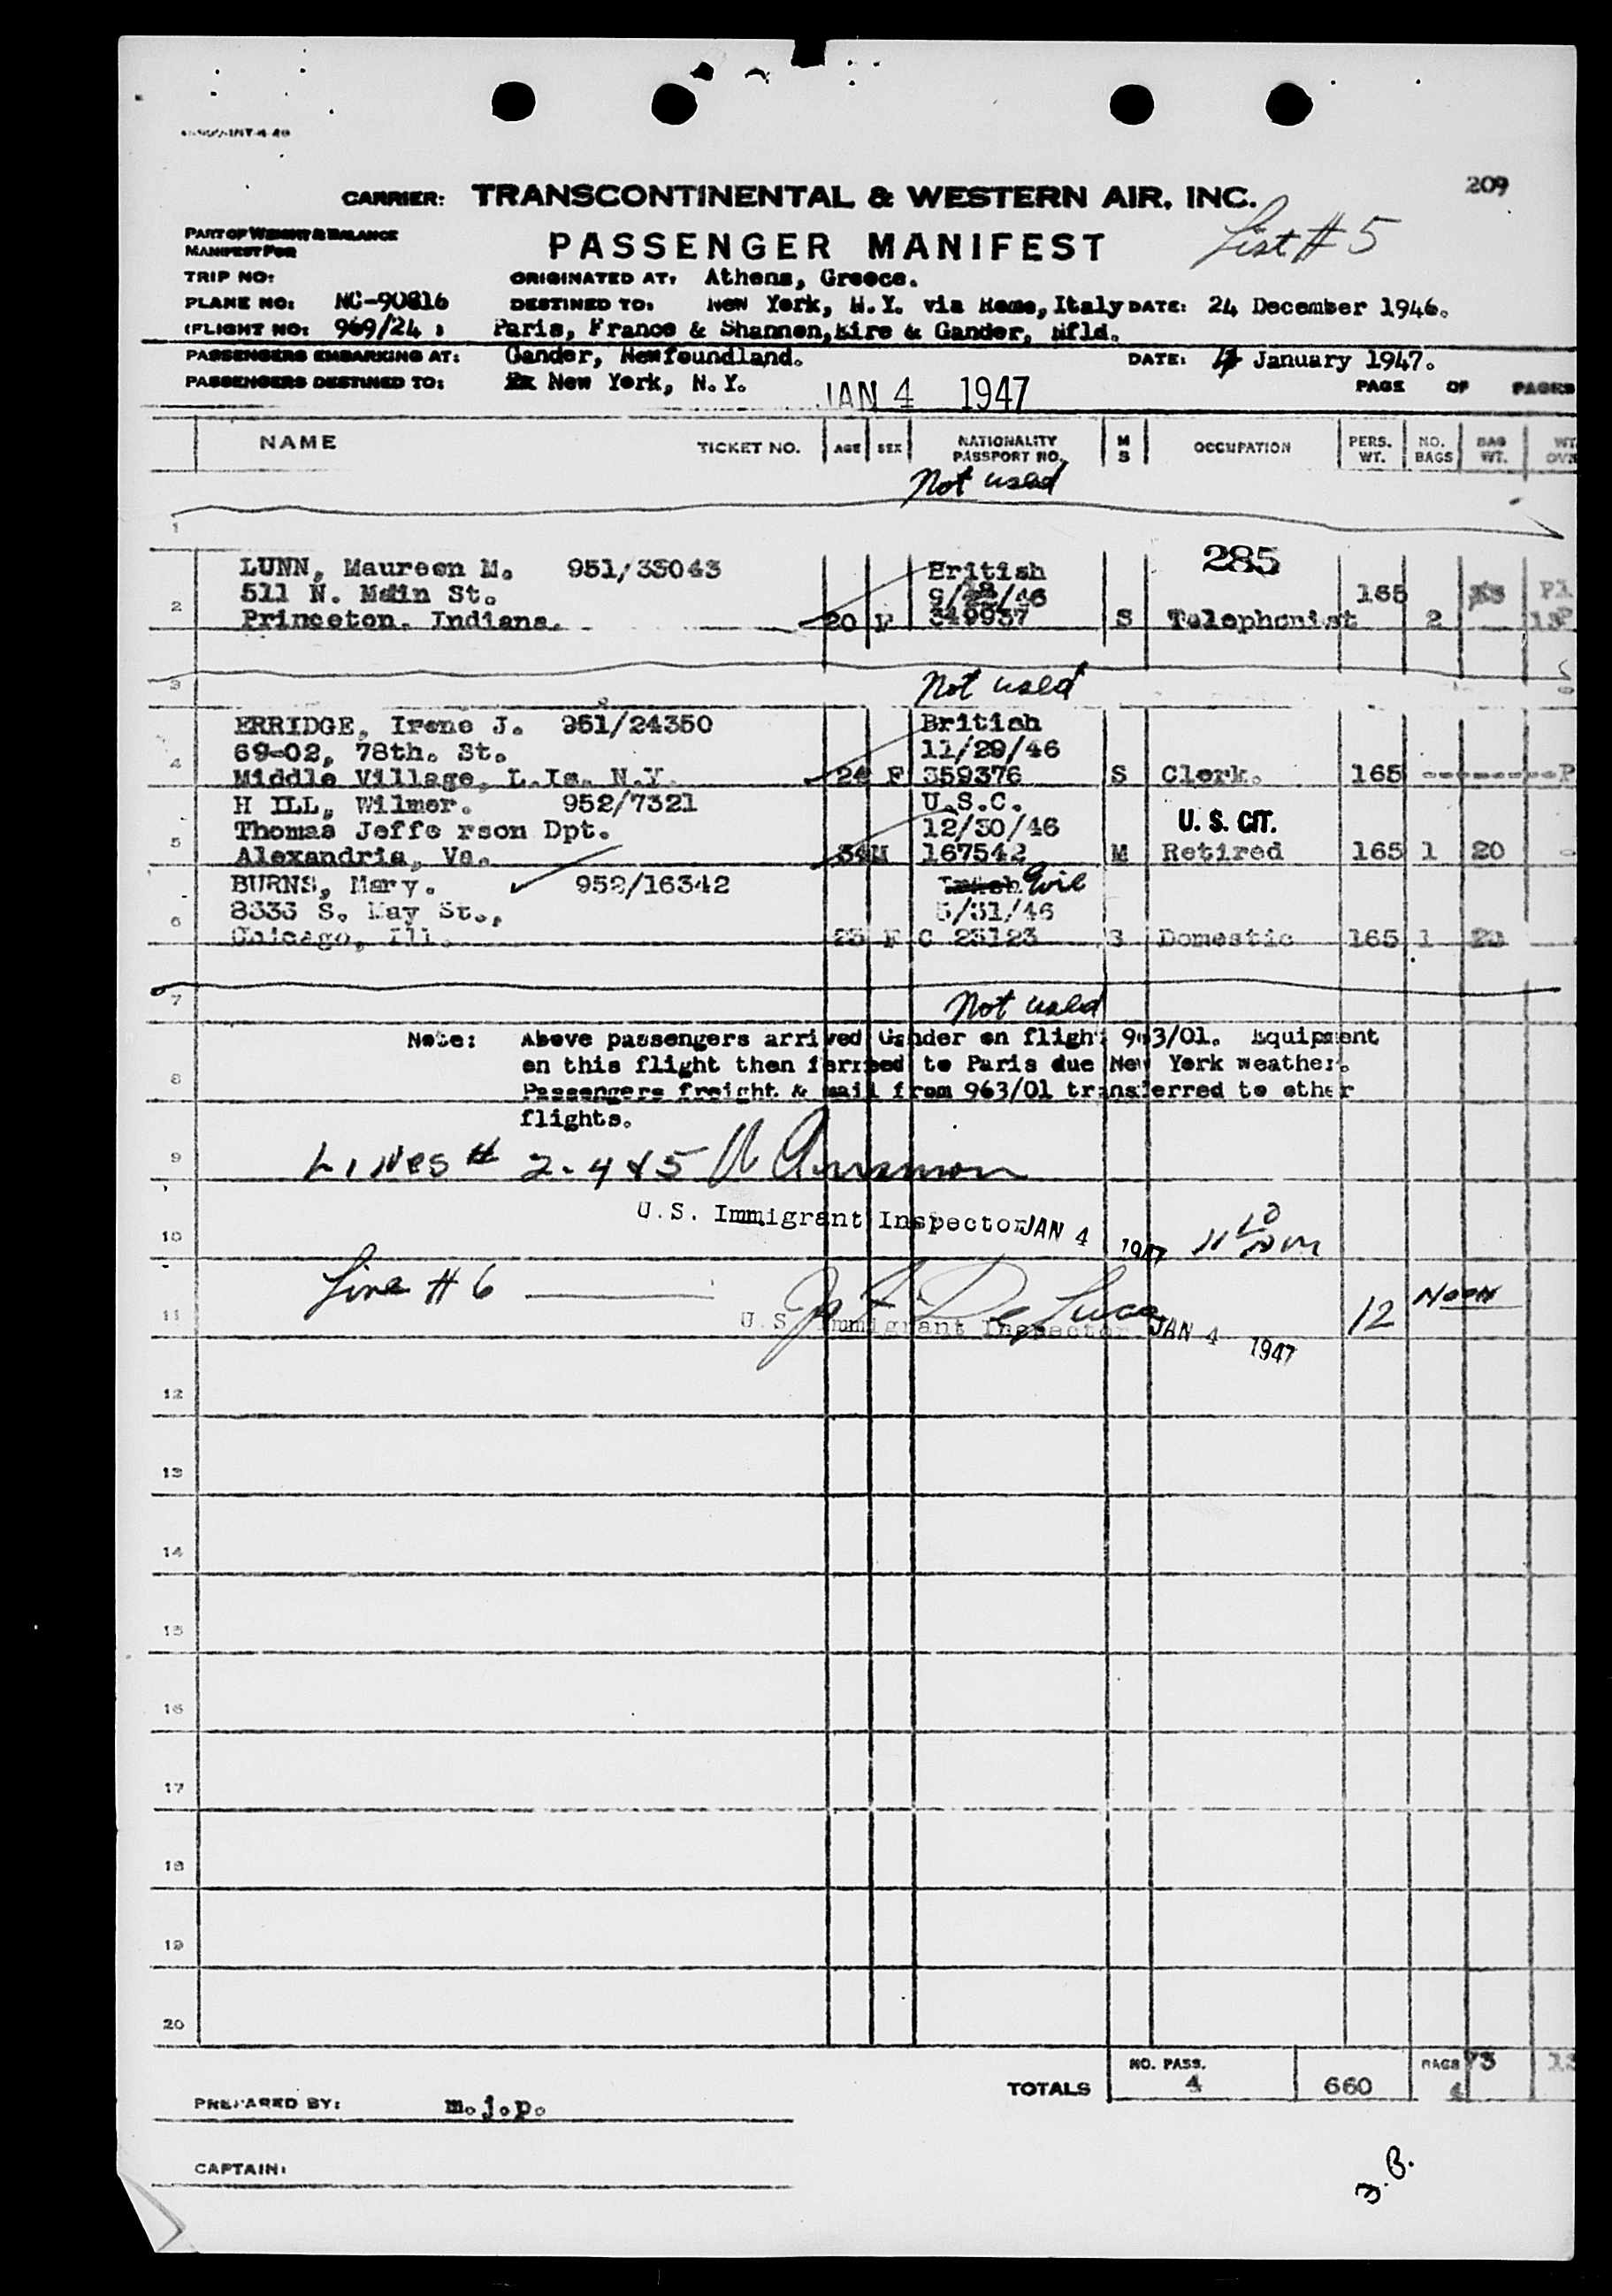 209
CARRIER: TRANSCONTINENTAL & WESTERN AIR, INC.
List # 5
PART OF WEIGHT & BALANCE
MANIFEST FOR
PASSENGER MANIFEST
TRIP NO:
ORIGINATED AT: Athens, Greece.
PLANE NO: NC-90816
DESTINED TO: New York, N.Y. via Rome, Italy DATE: 24 December 1946.
(FLIGHT NO: 969/24 )
Paris, France & Shannon, Eire & Gander, Nfld.
PASSENGERS EMBARKING AT: Gander, Newfoundland. DATE: 4 January 1947.
PASSENGERS DESTINED TO: New York, N.Y.
JAN 4 1947
PAGE OF PAGES
NAME TICKET NO. AGE SEX NATIONALITY PASSPORT NO. M S OCCUPATION PERS. WT. NO. BAGS BAG WT. WT
Not used
1
285
LUNN, Maureen M. 951/33043 British
511 N. Main St. 165
2 Princeton. Indiana. 20 F 349937 S Telephonist 2
3 Not used
ERRIDGE, Irene J. 951/24350 British
69-02, 78th. St. 11/29/46
4 Middle Village, L.Is. N.Y. 24 F 359376 S Clerk. 165 ---------P
H ILL, Wilmer. 952/7321 U.S.C.
Thomas Jeffe rson Dpt. 12/30/46 U. S. CIT.
5 Alexandria, Va. 34 M 167542 M Retired 165 1 20
BURNS, Mary. 952/16342
8333 S. May St., 5/31/46
6 Chicago, Ill. 23 F C 23123 S Domestic 165 1 20
7 Not used
Note: Above passengers arrived Gander on flight 963/01. Equipment
on this flight then ferried to Paris due New York weather.
8 Passengers freight & mail from 963/01 transferred to other
flights.
9 Lines # 2-4 & 5
U.S. Immigrant Inspector JAN 4 1947
10
Line # 6 J. F. De Luca 12 Noon
11 U.S. Immigrant Inspector JAN 4 1947
12
13
14
15
16
17
18
19
20
TOTALS NO. PASS. 4 660 BAGS 4 73
PREPARED BY: m.j.p.
CAPTAIN:
J.B.